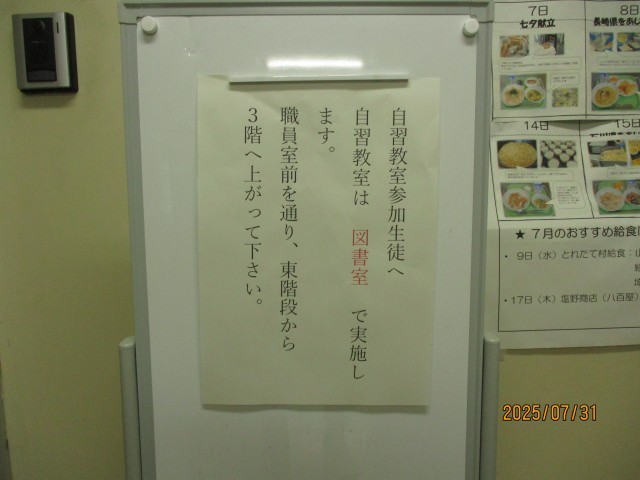 自習教室参加生徒へ
自習教室は 図書室 で実施し
ます。
職員室前を通り、東階段から
３階へ上がって下さい。
7日
七夕献立
8日
長崎県をあじ
14日
15日
★ 7月のおすすめ給食
・ 9日（水）とれたて村給食：山
・17日（木）塩野商店（八百屋）
2025/07/31